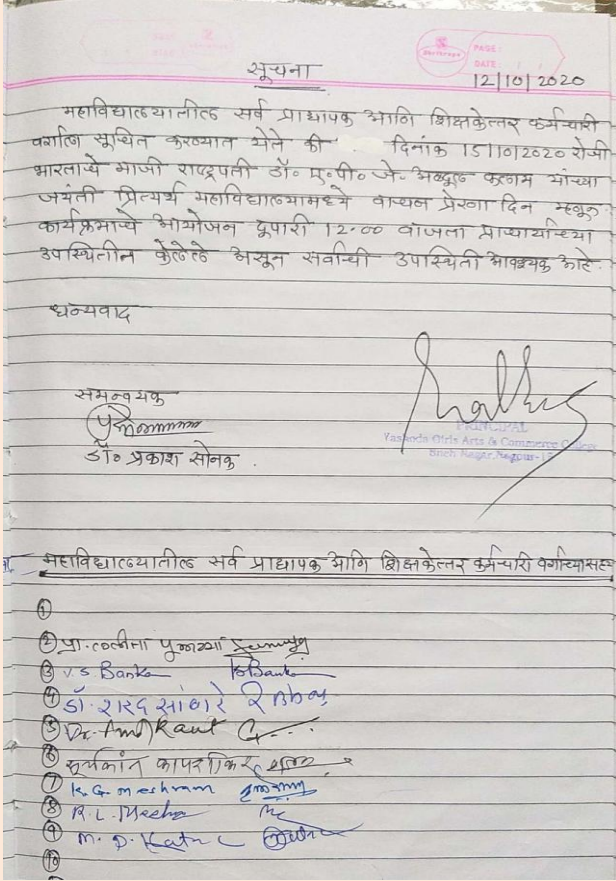 PAGE:
DATE:
सूचना
12/10/2020
महाविद्यालयातील सर्व प्राध्यापक आणि शिक्षकेत्तर कर्मचारी
वर्गाला सूचित करण्यात येते की दिनांक 15/10/2020 रोजी
भारताचे माजी राष्ट्रपती डॉ. ए.पी.जे. अब्दुल कलाम यांच्या
जयंती प्रित्यर्थ महाविद्यालयामध्ये वाचन प्रेरणा दिन म्हणून
कार्यक्रमाचे आयोजन दुपारी 12.00 वाजता प्राचार्यांच्या
उपस्थितीत केलेले असून सर्वांची उपस्थिती आवश्यक आहे.
धन्यवाद
समन्वयक
PRINCIPAL
Yashoda Girls Arts & Commerce College
Nagar, Nagpur-15
डॉ. प्रकाश सोनक.
महाविद्यालयातील सर्व प्राध्यापक आणि शिक्षकेत्तर कर्मचारी वर्गाच्या सह्या
1
2 प्रा.
3 V.S. Banke
4 डॉ. शरद सांबारे
5 Dr. Amit Raut
6 सूर्यकांत
7 K.G. Meshram
8 R.L.
9 M. D.
10